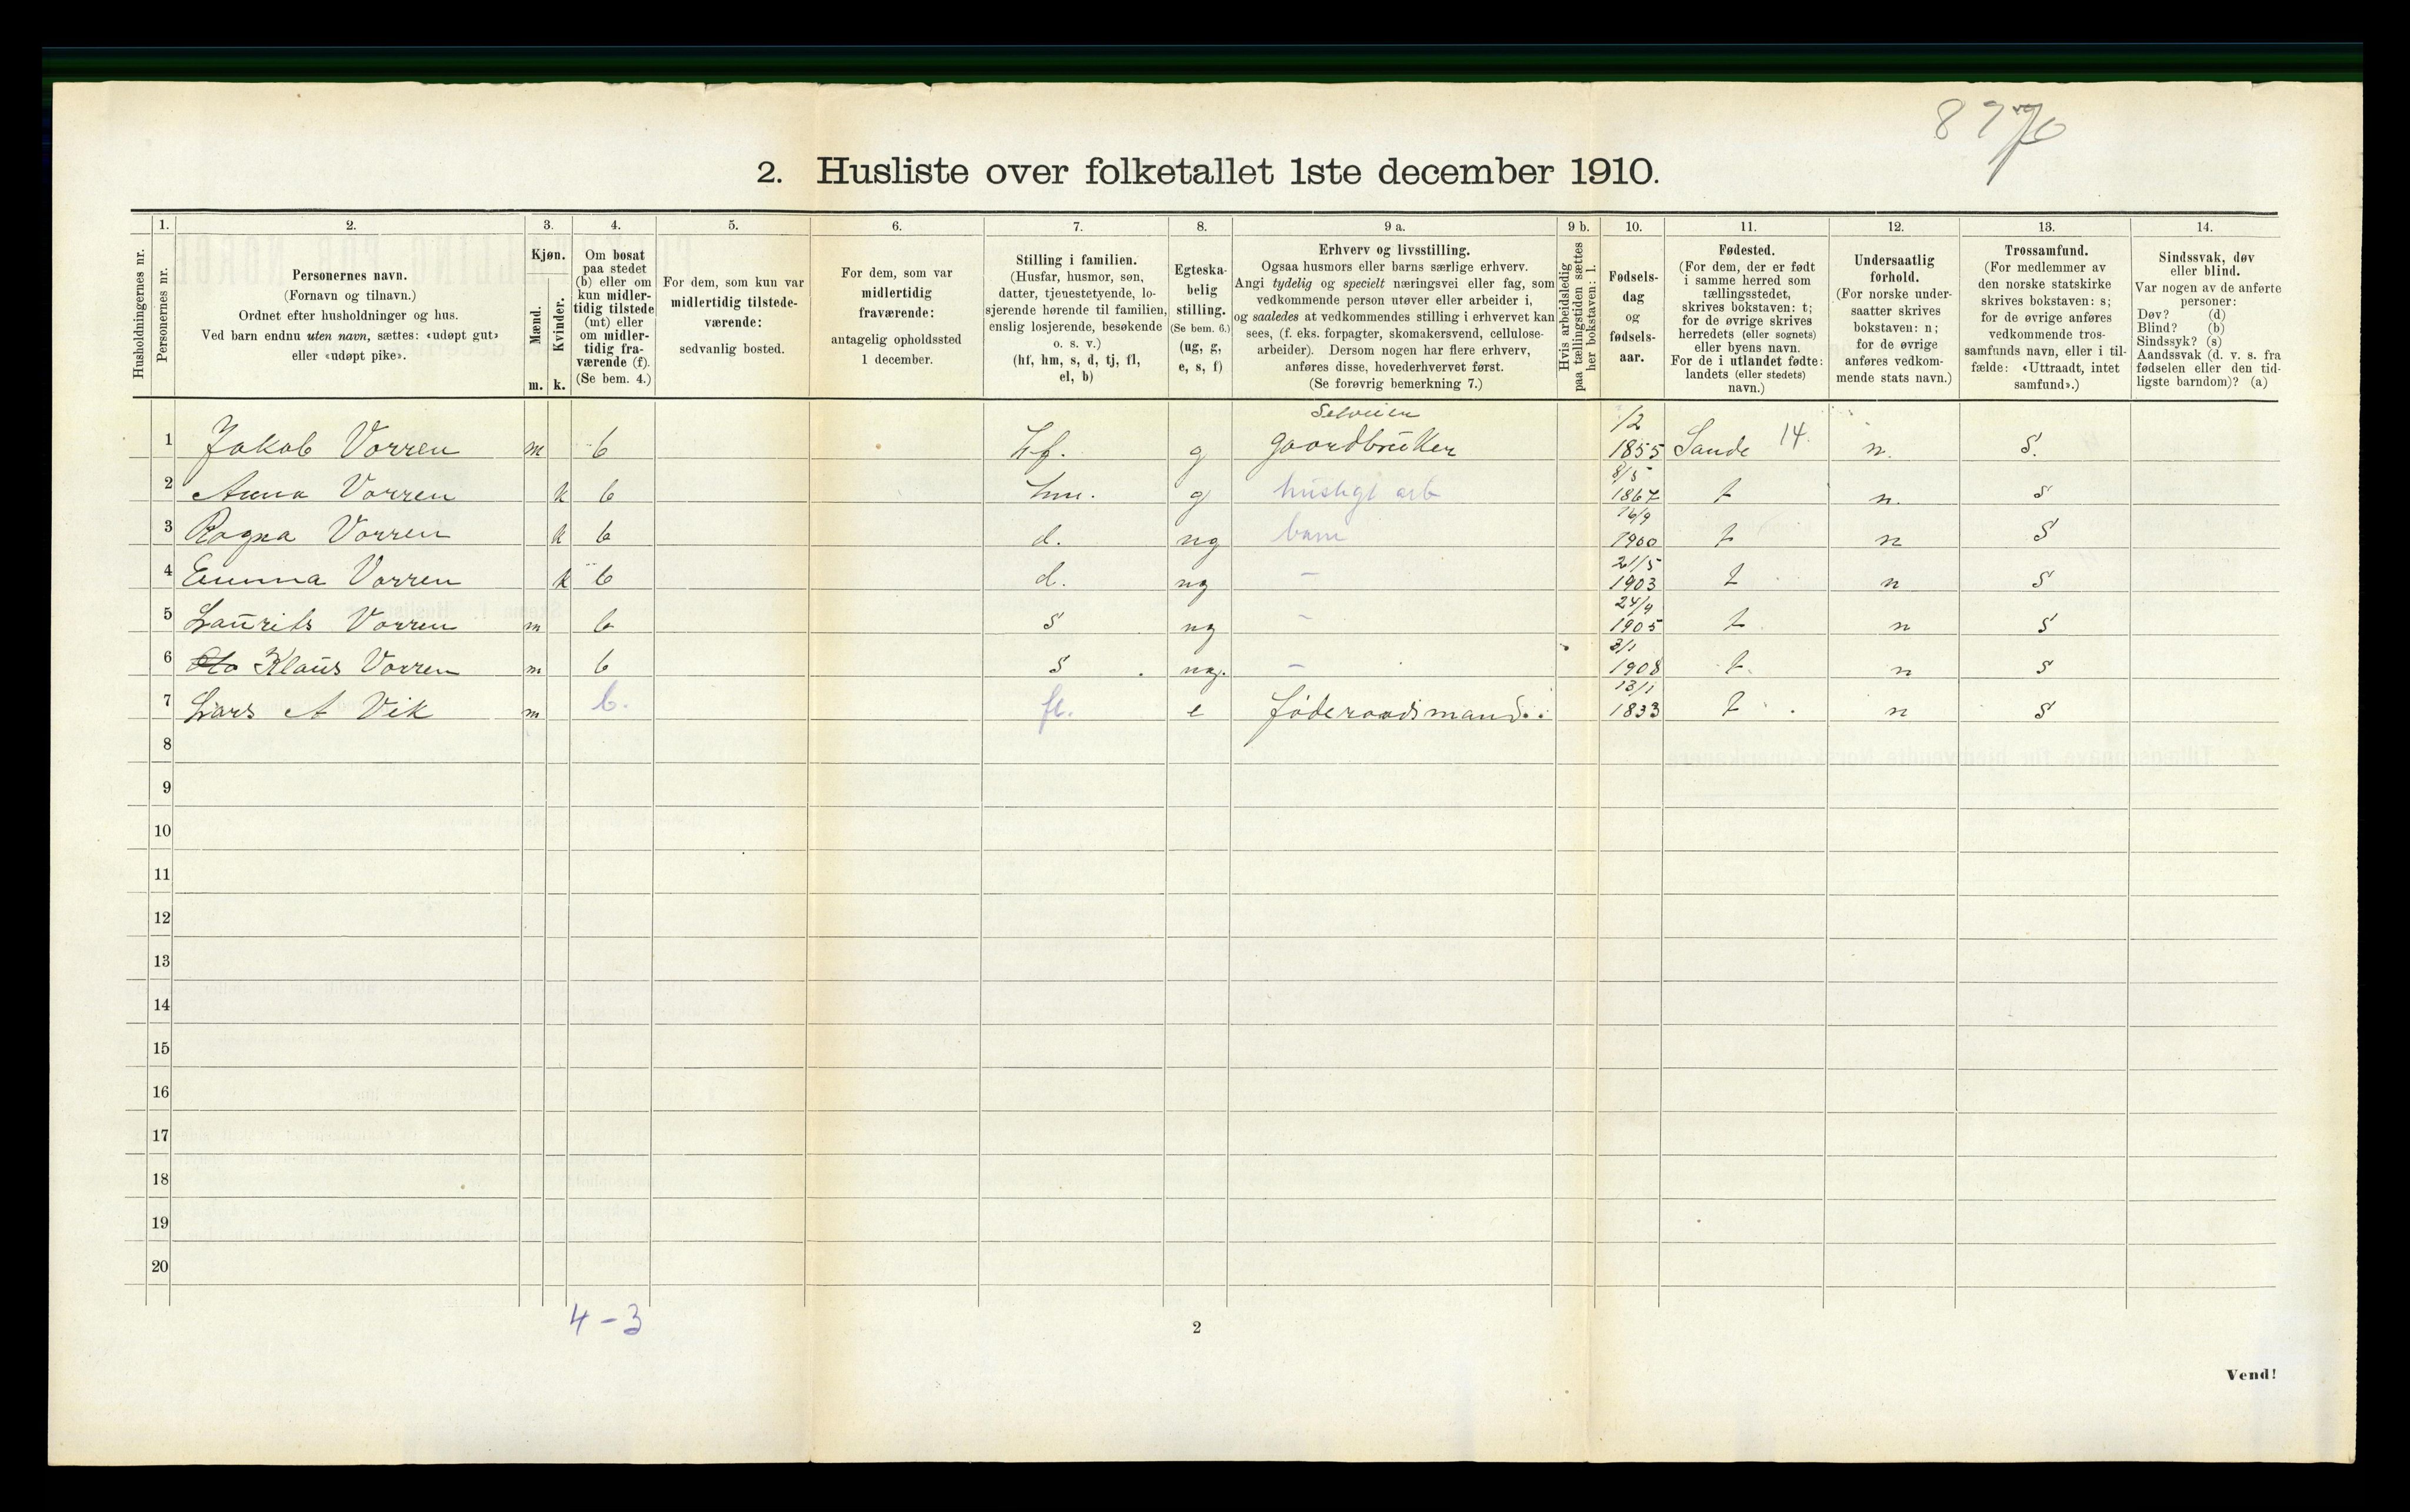 2. Husliste over folketallet 1ste december 1910.
Husholdningernes nr.
1. Personernes nr.
2. Personernes navn.
(Fornavn og tilnavn.)
Ordnet efter husholdninger og hus.
Ved barn endnu uten navn, sættes: «udøpt gut»
eller «udøpt pike».
3. Kjøn.
Mænd. m.
Kvinder. k.
4. Om bosat
paa stedet
(b) eller om
kun midler-
tidig tilstede
(mt) eller
om midler-
tidig fra-
værende (f).
(Se bem. 4.)
5. For dem, som kun var
midlertidig tilstede-
værende:
sedvanlig bosted.
6. For dem, som var
midlertidig
fraværende:
antagelig opholdssted
1 december.
7. Stilling i familien.
(Husfar, husmor, søn,
datter, tjenestetyende, lo-
sjerende hørende til familien,
enslig losjerende, besøkende
o. s. v.)
(hf, hm, s, d, tj, fl,
el, b)
8. Egteska-
belig
stilling.
(Se bem. 6.)
(ug, g,
e, s, f)
9 a. Erhverv og livsstilling.
Ogsaa husmors eller barns særlige erhverv.
Angi tydelig og specielt næringsvei eller fag, som
vedkommende person utøver eller arbeider i,
og saaledes at vedkommendes stilling i erhvervet kan
sees, (f. eks. forpagter, skomakersvend, cellulose-
arbeider). Dersom nogen har flere erhverv,
anføres disse, hovederhvervet først.
(Se forøvrig bemerkning 7.)
9 b. Hvis arbeidsledig
paa tællingstiden sættes
her bokstaven: l.
10. Fødsels-
dag
og
fødsels-
aar.
11. Fødested.
(For dem, der er født
i samme herred som
tællingsstedet,
skrives bokstaven: t;
for de øvrige skrives
herredets (eller sognets)
eller byens navn.
For de i utlandet fødte:
landets (eller stedets)
navn.)
12. Undersaatlig
forhold.
(For norske under-
saatter skrives
bokstaven: n;
for de øvrige
anføres vedkom-
mende stats navn.)
13. Trossamfund.
(For medlemmer av
den norske statskirke
skrives bokstaven: s;
for de øvrige anføres
vedkommende tros-
samfunds navn, eller i til-
fælde: «Uttraadt, intet
samfund».)
14. Sindssvak, døv
eller blind.
Var nogen av de anførte
personer:
Døv? (d)
Blind? (b)
Sindssyk? (s)
Aandssvak (d. v. s. fra
fødselen eller den tid-
ligste barndom)? (a)
1 Jakob Vorren m b hf. g Selveier gaardbruker 1/2 1855 Sande 14. n. S.
2 Anna Vorren k b hm. g husligt arb 8/5 1867 t n. S
3 Ragna Vorren k b d. ug barn 16/9 1900 t n S
4 Emma Vorren k b d. ug - 21/5 1903 t n S
5 Laurits Vorren m b S ug - 24/9 1905 t n S
6 Klaus Vorren m b S ug. - 3/1 1908 t n S
7 Lars A Vik m b. fl. e føderaadsmand 13/1 1833 t n S
8
9
10
11
12
13
14
15
16
17
18
19
20
4 - 3
2
Vend!